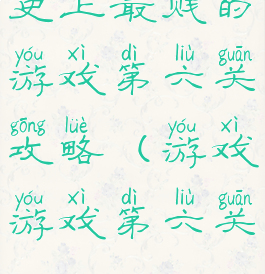 史上最贱的
yóu xì dì liù guān
游戏第六关
gōng lüè yóu xì
攻略（游戏
yóu xì dì liù guān
游戏第六关